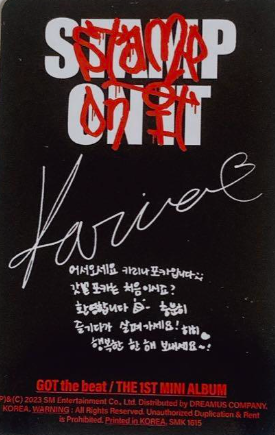 STAMP
ON IT
Stamp
on it
Karina
어서오세요 카리나포카입니다;;
갓더 포카는 처음이시죠?
환영합니다 충분히
즐기다가 살펴가세요! 히히
행복한 한 해 보내세요~!
GOT the beat / THE 1ST MINI ALBUM
P)&(C) 2023 SM Entertainment Co., Ltd. Distributed by DREAMUS COMPANY.
KOREA. WARNING : All Rights Reserved. Unauthorized Duplication & Rent
is Prohibited. Printed in KOREA. SMK 1615